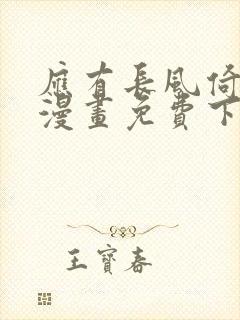 應有長風倚
漫畫免費下
王寶春